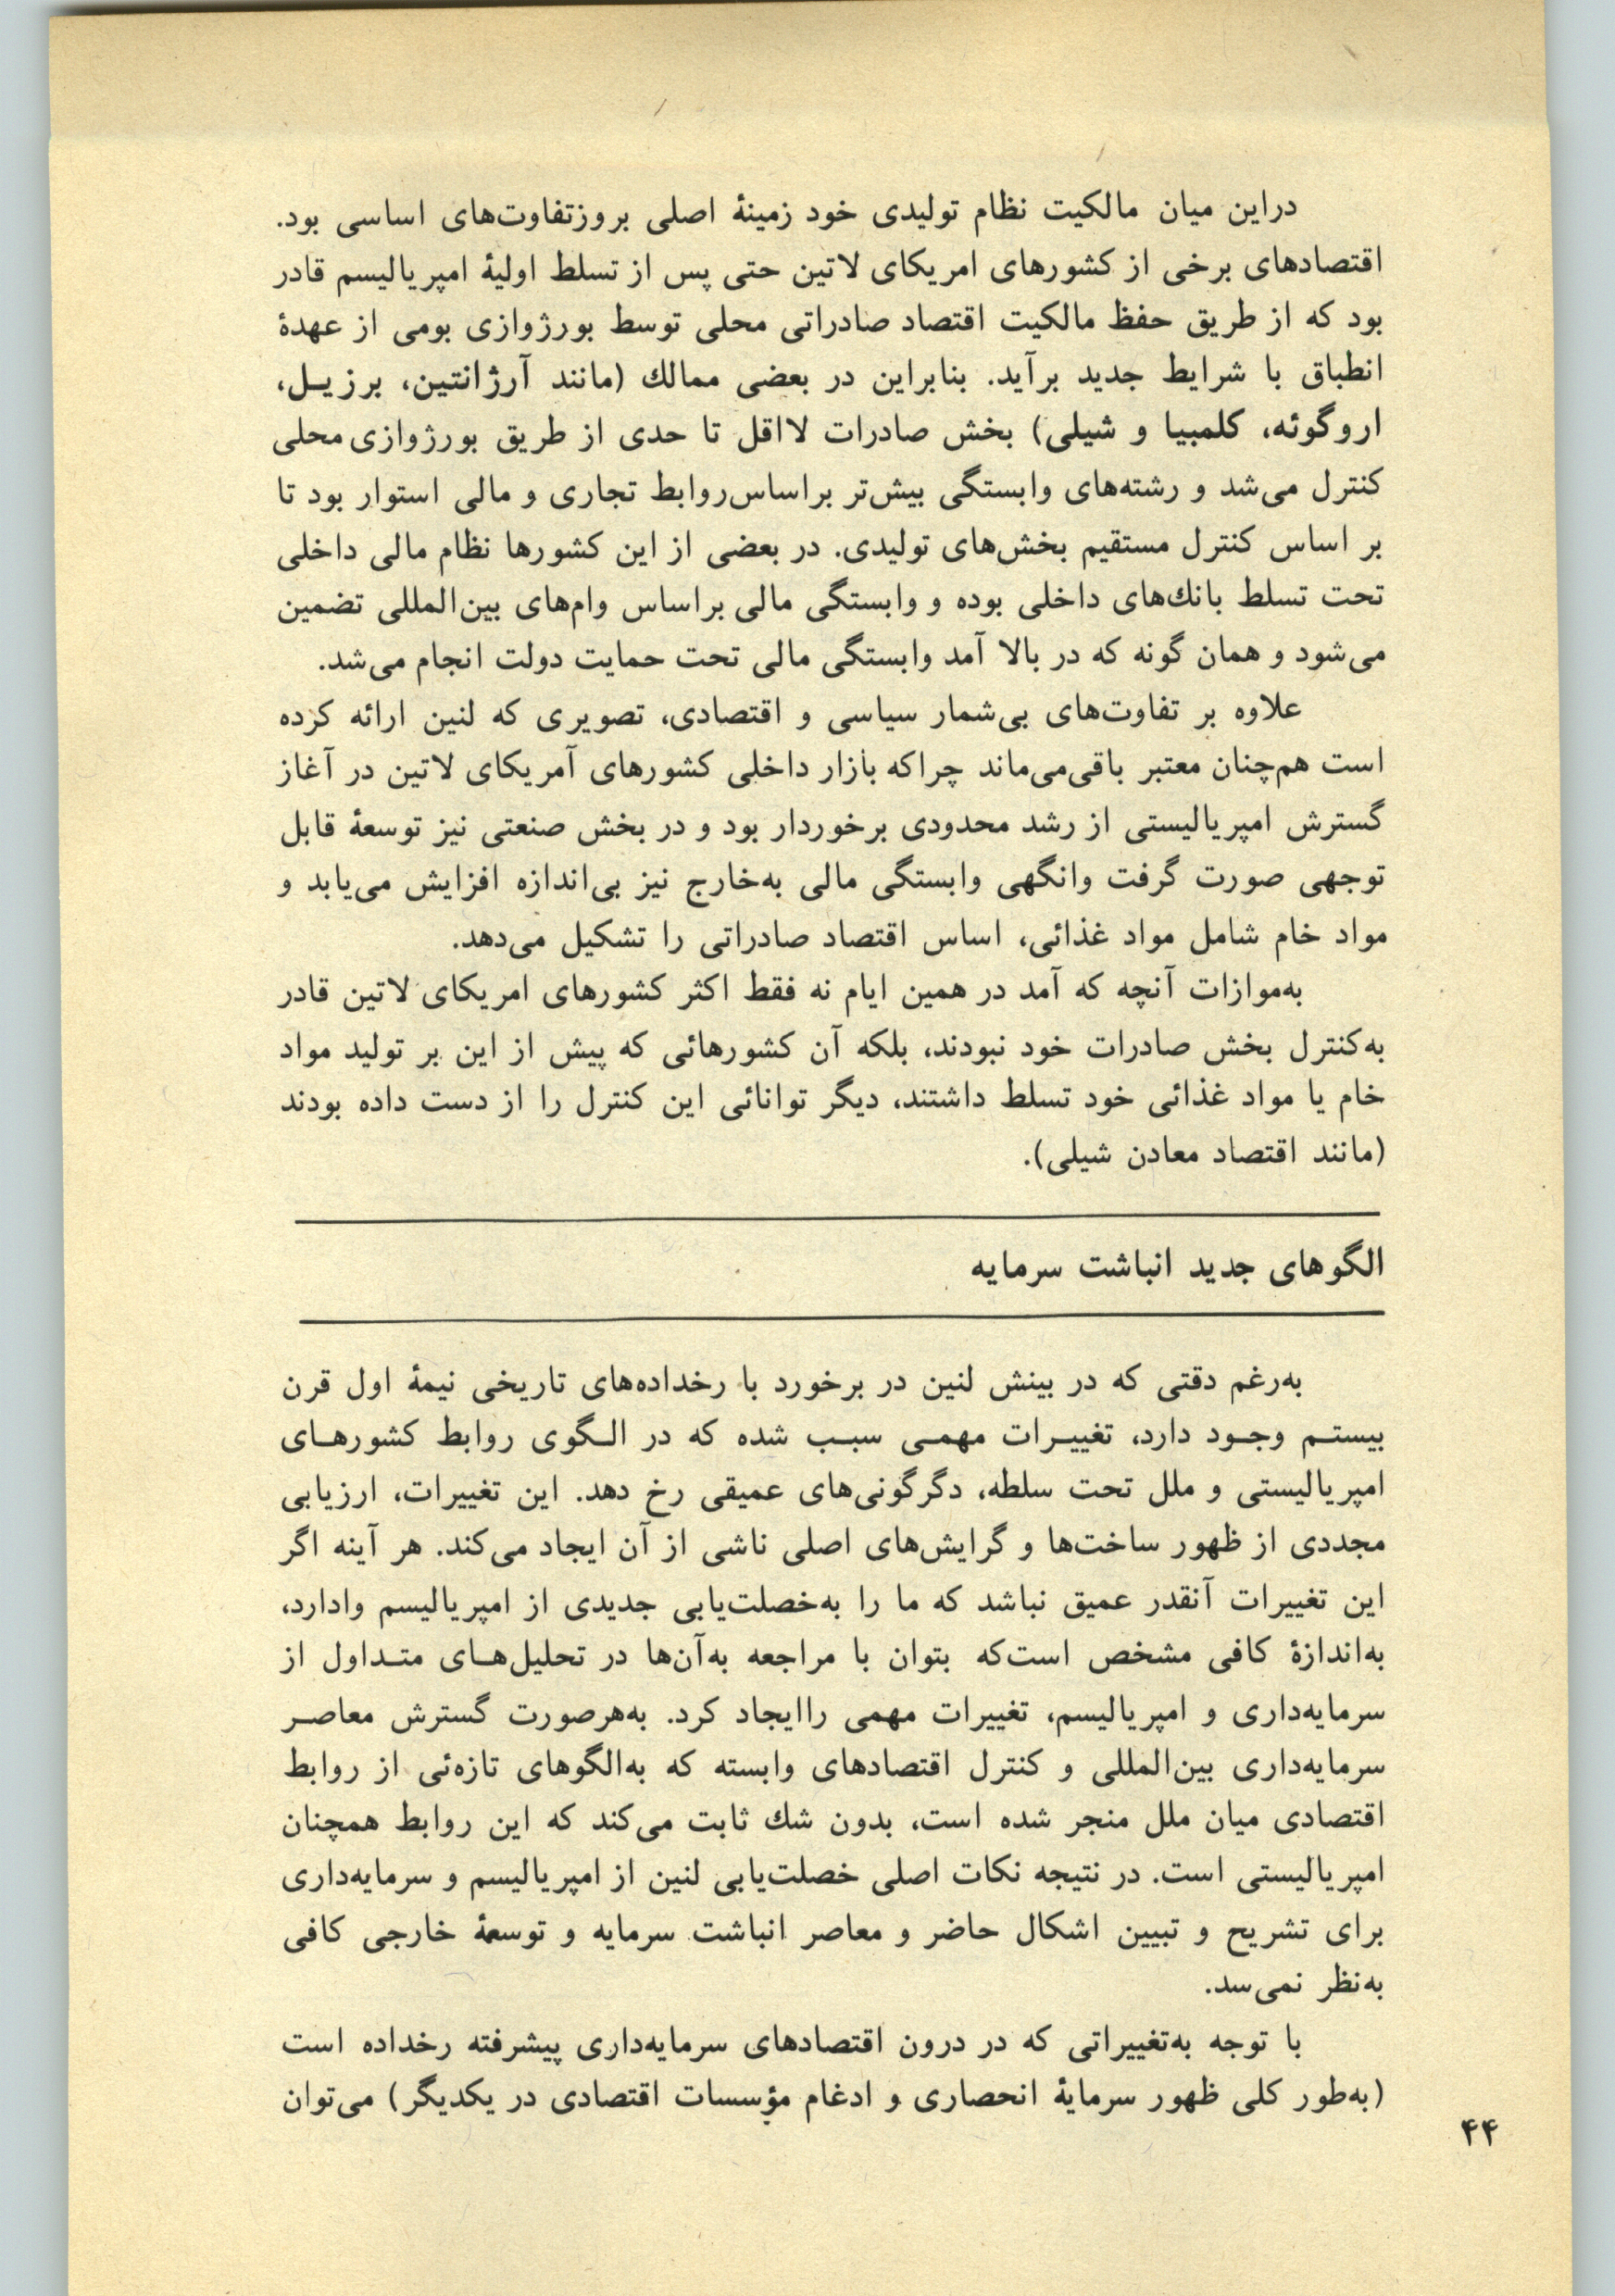 دراین میان مالکیت نظام تولیدی خود زمینهٔ اصلی بروزتفاوت‌های اساسی بود.
اقتصادهای برخی از کشورهای امریکای لاتین حتی پس از تسلط اولیهٔ امپریالیسم قادر
بود که از طریق حفظ مالکیت اقتصاد صادراتی محلی توسط بورژوازی بومی از عهدهٔ
انطباق با شرایط جدید برآید. بنابراین در بعضی ممالك (مانند آرژانتین، برزیـل،
اروگوئه، کلمبیا و شیلی) بخش صادرات لااقل تا حدی از طریق بورژوازی محلی
کنترل می‌شد و رشته‌های وابستگی بیش‌تر براساس‌روابط تجاری و مالی استوار بود تا
بر اساس کنترل مستقیم بخش‌های تولیدی. در بعضی از این کشورها نظام مالی داخلی
تحت تسلط بانك‌های داخلی بوده و وابستگی مالی براساس وام‌های بین‌المللی تضمین
می‌شود و همان گونه که در بالا آمد وابستگی مالی تحت حمایت دولت انجام می‌شد.
علاوه بر تفاوت‌های بی‌شمار سیاسی و اقتصادی، تصویری که لنین ارائه کرده
است هم‌چنان معتبر باقی‌می‌ماند چراکه بازار داخلی کشورهای آمریکای لاتین در آغاز
گسترش امپریالیستی از رشد محدودی برخوردار بود و در بخش صنعتی نیز توسعهٔ قابل
توجهی صورت گرفت وانگهی وابستگی مالی به‌خارج نیز بی‌اندازه افزایش می‌یابد و
مواد خام شامل مواد غذائی، اساس اقتصاد صادراتی را تشکیل می‌دهد.
به‌موازات آنچه که آمد در همین ایام نه فقط اکثر کشورهای امریکای لاتین قادر
به‌کنترل بخش صادرات خود نبودند، بلکه آن کشورهائی که پیش از این بر تولید مواد
خام یا مواد غذائی خود تسلط داشتند، دیگر توانائی این کنترل را از دست داده بودند
(مانند اقتصاد معادن شیلی).
الگوهای جدید انباشت سرمایه
به‌رغم دقتی که در بینش لنین در برخورد با رخداده‌های تاریخی نیمهٔ اول قرن
بیستـم وجـود دارد، تغییـرات مهمـی سبـب شده که در الـگوی روابط کشورهـای
امپریالیستی و ملل تحت سلطه، دگرگونی‌های عمیقی رخ دهد. این تغییرات، ارزیابی
مجددی از ظهور ساخت‌ها و گرایش‌های اصلی ناشی از آن ایجاد می‌کند. هر آینه اگر
این تغییرات آنقدر عمیق نباشد که ما را به‌خصلت‌یابی جدیدی از امپریالیسم وادارد،
به‌اندازهٔ کافی مشخص است‌که بتوان با مراجعه به‌آن‌ها در تحلیل‌هـای متـداول از
سرمایه‌داری و امپریالیسم، تغییرات مهمی راایجاد کرد. به‌هرصورت گسترش معاصـر
سرمایه‌داری بین‌المللی و کنترل اقتصادهای وابسته که به‌الگوهای تازه‌ئی از روابط
اقتصادی میان ملل منجر شده است، بدون شك ثابت می‌کند که این روابط همچنان
امپریالیستی است. در نتیجه نکات اصلی خصلت‌یابی لنین از امپریالیسم و سرمایه‌داری
برای تشریح و تبیین اشکال حاضر و معاصر انباشت سرمایه و توسعهٔ خارجی کافی
به‌نظر نمی‌سد.
با توجه به‌تغییراتی که در درون اقتصادهای سرمایه‌داری پیشرفته رخداده است
(به‌طور کلی ظهور سرمایهٔ انحصاری و ادغام مؤسسات اقتصادی در یکدیگر) می‌توان
۴۴